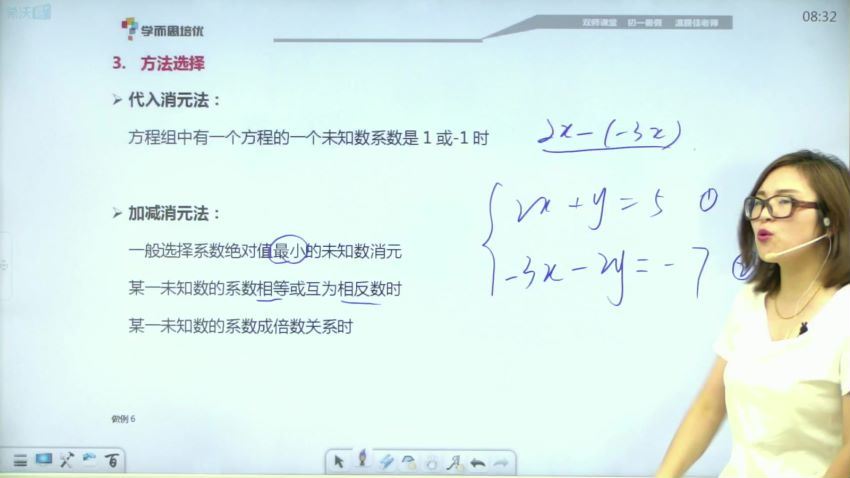 希沃
学而思培优
双师课堂 初一暑假
08:32
3. 方法选择
➢ 代入消元法：
方程组中有一个方程的一个未知数系数是 1 或-1 时
2x-(-3x)
2x+y=5 ①
-3x-2y=-7 ②
➢ 加减消元法：
一般选择系数绝对值最小的未知数消元
某一未知数的系数相等或互为相反数时
某一未知数的系数成倍数关系时
做例 6
百